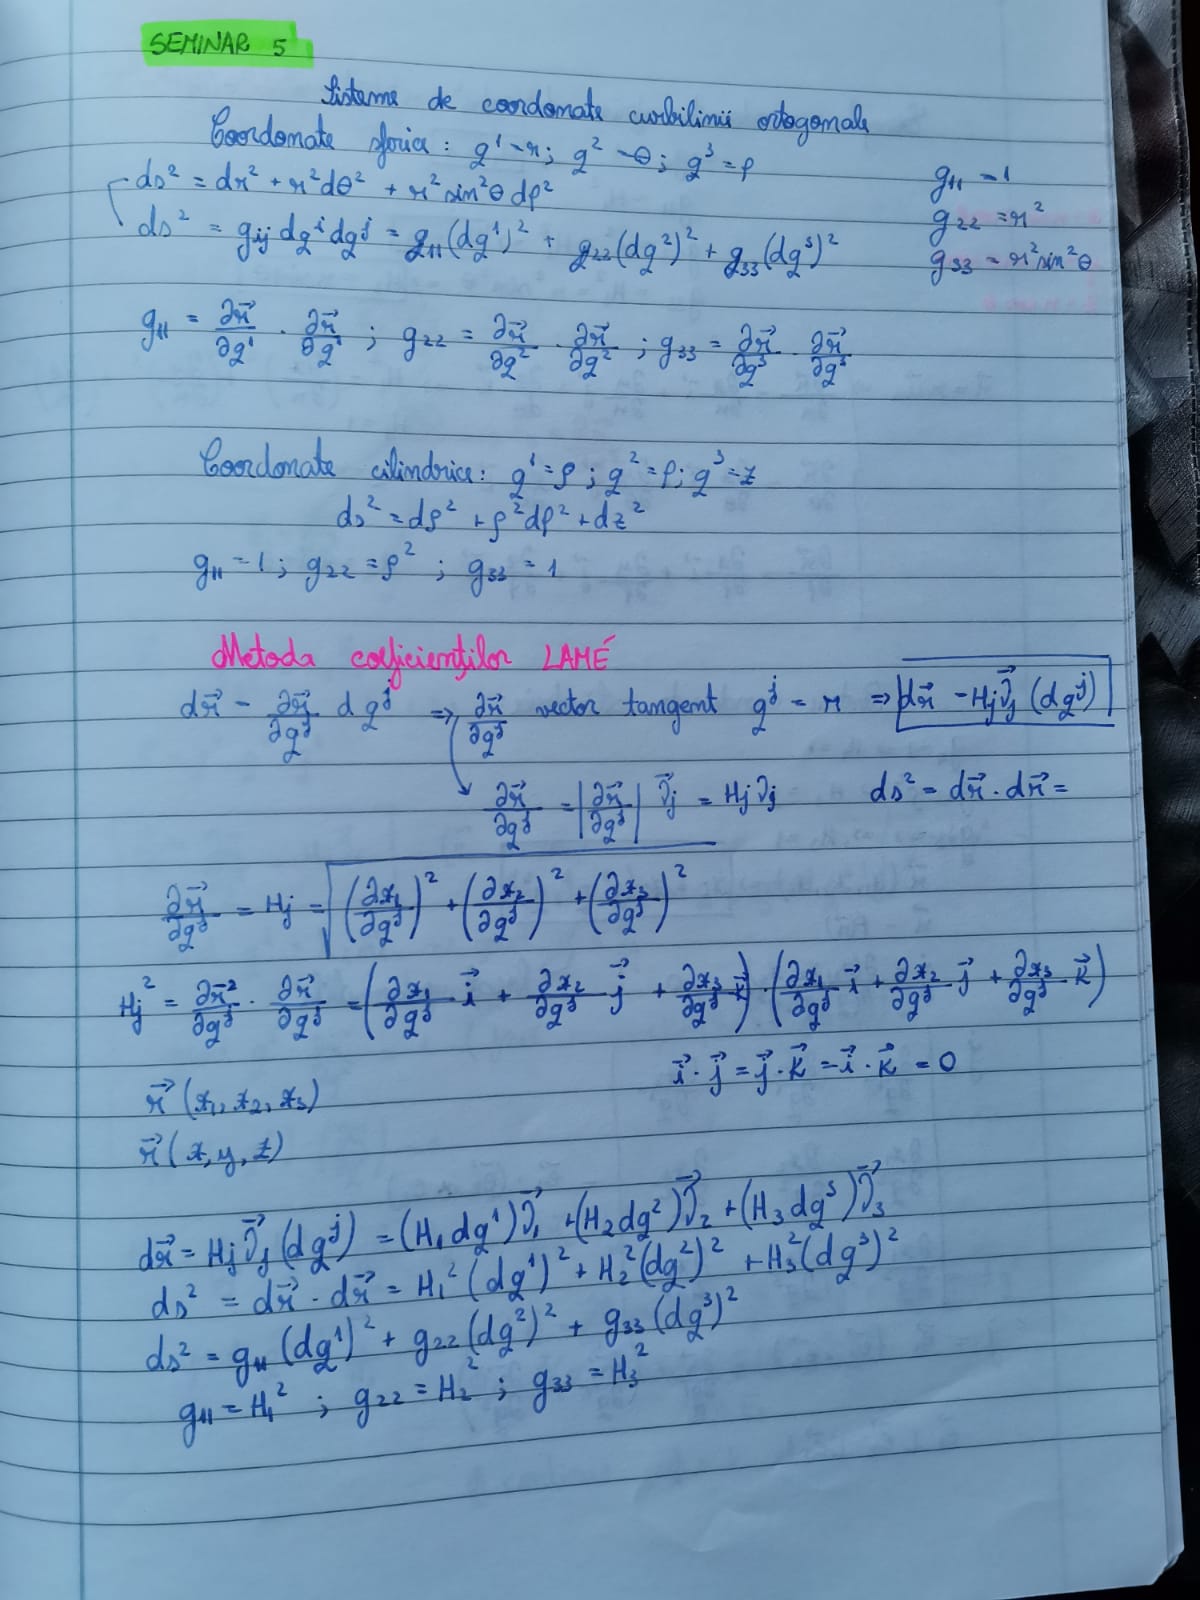 SEMINAR 5
Sisteme de coordonate curbilinii ortogonale
Coordonate sferice: q¹ = r; q² = θ; q³ = φ
ds² = dr² + r²dθ² + r² sin²θ dφ²
g₁₁ = 1
g₂₂ = r²
g₃₃ = r² sin²θ
ds² = gᵢⱼ dqⁱ dqʲ = g₁₁(dq¹)² + g₂₂(dq²)² + g₃₃(dq³)²
g₁₁ = ∂r⃗/∂q¹ · ∂r⃗/∂q¹ ; g₂₂ = ∂r⃗/∂q² · ∂r⃗/∂q² ; g₃₃ = ∂r⃗/∂q³ · ∂r⃗/∂q³
Coordonate cilindrice: q¹ = ρ; q² = φ; q³ = z
ds² = dρ² + ρ²dφ² + dz²
g₁₁ = 1; g₂₂ = ρ²; g₃₃ = 1
Metoda coeficienților LAMÉ
dr⃗ = ∂r⃗/∂qʲ dqʲ ⇒ ∂r⃗/∂qʲ vector tangent qʲ = r ⇒ dr⃗ = Hⱼ ν⃗ⱼ (dqʲ)
∂r⃗/∂qʲ = |∂r⃗/∂qʲ| ν⃗ⱼ = Hⱼ νⱼ
ds² = dr⃗ · dr⃗ =
∂r⃗/∂qʲ = Hⱼ = √((∂x₁/∂qʲ)² + (∂x₂/∂qʲ)² + (∂x₃/∂qʲ)²)
Hⱼ² = ∂r⃗²/∂qʲ · ∂r⃗/∂qʲ = (∂x₁/∂qʲ i⃗ + ∂x₂/∂qʲ j⃗ + ∂x₃/∂qʲ k⃗) · (∂x₁/∂qʲ i⃗ + ∂x₂/∂qʲ j⃗ + ∂x₃/∂qʲ k⃗)
i⃗ · j⃗ = j⃗ · k⃗ = i⃗ · k⃗ = 0
r⃗ (x₁, x₂, x₃)
r⃗ (x, y, z)
dr⃗ = Hⱼ ν⃗ⱼ (dqʲ) = (H₁ dq¹) ν⃗₁ + (H₂ dq²) ν⃗₂ + (H₃ dq³) ν⃗₃
ds² = dr⃗ · dr⃗ = H₁² (dq¹)² + H₂² (dq²)² + H₃² (dq³)²
ds² = g₁₁ (dq¹)² + g₂₂ (dq²)² + g₃₃ (dq³)²
g₁₁ = H₁² ; g₂₂ = H₂² ; g₃₃ = H₃²